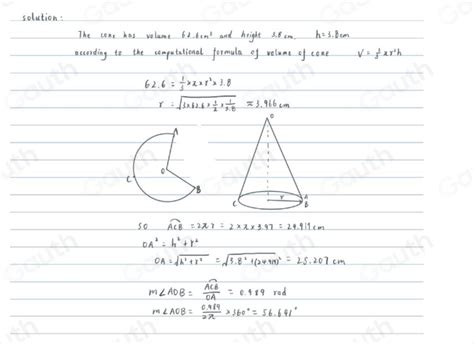 solution:
The cone has volume 62.6cm³ and height 3.8cm. h=3.8cm
according to the computational formula of volume of cone V=⅓πr²h
62.6=⅓×π×r²×3.8
r=√(3×62.6×1/π×1/3.8) ≈3.966cm
A
O
C
B
O
C
r
A
B
so ACB=2πr=2×π×3.97=24.919cm
OA²=h²+r²
OA=√(h²+r²)=√(3.8²+(24.919)²)=25.207cm
m∠AOB=ACB/OA=0.989 rad
m∠AOB=0.989/2π×360°=56.641°
Gauth